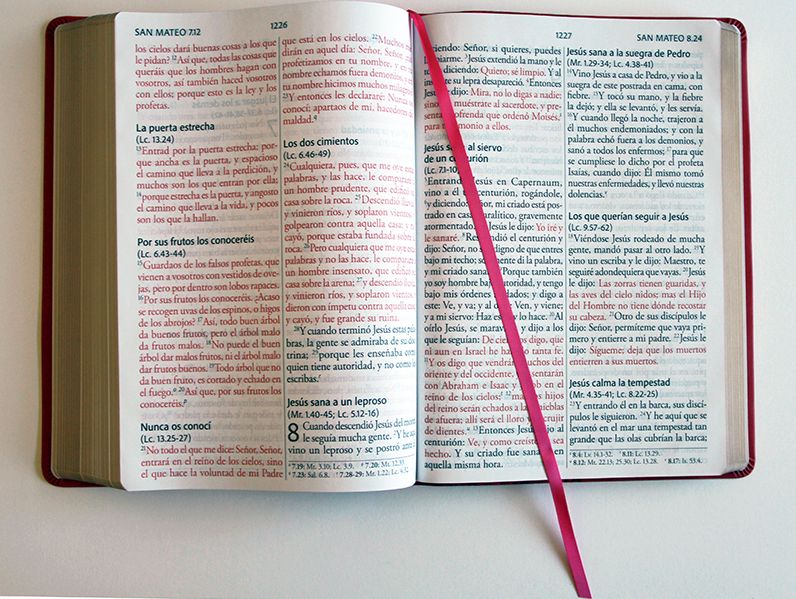 SAN MATEO 7.12
1226
los cielos dará buenas cosas a los que
le pidan? 12Así que, todas las cosas que
queráis que los hombres hagan con
vosotros, así también haced vosotros
con ellos; porque esto es la ley y los
profetas.
La puerta estrecha
(Lc. 13.24)
13Entrad por la puerta estrecha; por-
que ancha es la puerta, y espacioso
el camino que lleva a la perdición, y
muchos son los que entran por ella;
14porque estrecha es la puerta, y angosto
el camino que lleva a la vida, y pocos
son los que la hallan.
Por sus frutos los conoceréis
(Lc. 6.43-44)
15Guardaos de los falsos profetas, que
vienen a vosotros con vestidos de ove-
jas, pero por dentro son lobos rapaces.
16Por sus frutos los conoceréis. ¿Acaso
se recogen uvas de los espinos, o higos
de los abrojos? 17Así, todo buen árbol
da buenos frutos, pero el árbol malo
da frutos malos. 18No puede el buen
árbol dar malos frutos, ni el árbol malo
dar frutos buenos. 19Todo árbol que no
da buen fruto, es cortado y echado en
el fuego. 20Así que, por sus frutos los
conoceréis.
Nunca os conocí
(Lc. 13.25-27)
21No todo el que me dice: Señor, Señor,
entrará en el reino de los cielos, sino
el que hace la voluntad de mi Padre
que está en los cielos. 22Muchos me
dirán en aquel día: Señor, Señor, ¿no
profetizamos en tu nombre, y en tu
nombre echamos fuera demonios, y en
tu nombre hicimos muchos milagros?
23Y entonces les declararé: Nunca os
conocí; apartaos de mí, hacedores de
maldad.
Los dos cimientos
(Lc. 6.46-49)
24Cualquiera, pues, que me oye estas
palabras, y las hace, le compararé a
un hombre prudente, que edificó su
casa sobre la roca. 25Descendió lluvia,
y vinieron ríos, y soplaron vientos, y
golpearon contra aquella casa; y no
cayó, porque estaba fundada sobre la
roca. 26Pero cualquiera que me oye estas
palabras y no las hace, le compararé a
un hombre insensato, que edificó su
casa sobre la arena; 27y descendió lluvia,
y vinieron ríos, y soplaron vientos, y
dieron con ímpetu contra aquella casa;
y cayó, y fue grande su ruina.
28Y cuando terminó Jesús estas pala-
bras, la gente se admiraba de su doc-
trina; 29porque les enseñaba como
quien tiene autoridad, y no como los
escribas.
Jesús sana a un leproso
(Mr. 1.40-45; Lc. 5.12-16)
8 Cuando descendió Jesús del monte,
le seguía mucha gente. 2Y he aquí
vino un leproso y se postró ante
7.19: Mt. 3.10; Lc. 3.9. 7.20: Mt. 12.33.
7.23: Sal. 6.8. 7.28-29: Mr. 1.22; Lc. 4.32
1227
SAN MATEO 8.24
diciendo: Señor, si quieres, puedes
limpiarme. 3Jesús extendió la mano y le
tocó, diciendo: Quiero; sé limpio. Y al
instante su lepra desapareció. 4Entonces
Jesús le dijo: Mira, no lo digas a nadie;
sino ve, muéstrate al sacerdote, y pre-
senta la ofrenda que ordenó Moisés,
para testimonio a ellos.
Jesús sana al siervo
de un centurión
(Lc. 7.1-10)
5Entrando Jesús en Capernaum,
vino a él un centurión, rogándole,
6y diciendo: Señor, mi criado está pos-
trado en casa, paralítico, gravemente
atormentado. 7Y Jesús le dijo: Yo iré y
le sanaré. 8Respondió el centurión y
dijo: Señor, no soy digno de que entres
bajo mi techo; solamente di la palabra,
y mi criado sanará. 9Porque también
yo soy hombre bajo autoridad, y tengo
bajo mis órdenes soldados; y digo a
este: Ve, y va; y al otro: Ven, y viene;
y a mi siervo: Haz esto, y lo hace. 10Al
oírlo Jesús, se maravilló, y dijo a los
que le seguían: De cierto os digo, que
ni aun en Israel he hallado tanta fe.
11Y os digo que vendrán muchos del
oriente y del occidente, y se sentarán
con Abraham e Isaac y Jacob en el
reino de los cielos; 12mas los hijos
del reino serán echados a las tinieblas
de afuera; allí será el lloro y el crujir
de dientes. 13Entonces Jesús dijo al
centurión: Ve, y como creíste, te sea
hecho. Y su criado fue sanado en
aquella misma hora.
Jesús sana a la suegra de Pedro
(Mr. 1.29-34; Lc. 4.38-41)
14Vino Jesús a casa de Pedro, y vio a la
suegra de este postrada en cama, con
fiebre. 15Y tocó su mano, y la fiebre
la dejó; y ella se levantó, y les servía.
16Y cuando llegó la noche, trajeron a
él muchos endemoniados; y con la
palabra echó fuera a los demonios, y
sanó a todos los enfermos; 17para que
se cumpliese lo dicho por el profeta
Isaías, cuando dijo: Él mismo tomó
nuestras enfermedades, y llevó nuestras
dolencias.
Los que querían seguir a Jesús
(Lc. 9.57-62)
18Viéndose Jesús rodeado de mucha
gente, mandó pasar al otro lado. 19Y
vino un escriba y le dijo: Maestro, te
seguiré adondequiera que vayas. 20Jesús
le dijo: Las zorras tienen guaridas, y
las aves del cielo nidos; mas el Hijo
del Hombre no tiene dónde recostar
su cabeza. 21Otro de sus discípulos le
dijo: Señor, permíteme que vaya pri-
mero y entierre a mi padre. 22Jesús le
dijo: Sígueme; deja que los muertos
entierren a sus muertos.
Jesús calma la tempestad
(Mr. 4.35-41; Lc. 8.22-25)
23Y entrando él en la barca, sus discí-
pulos le siguieron. 24Y he aquí que se
levantó en el mar una tempestad tan
grande que las olas cubrían la barca;
8.4: Lv. 14.1-32. 8.11: Lc. 13.29.
8.12: Mt. 22.13; 25.30; Lc. 13.28. 8.17: Is. 53.4.